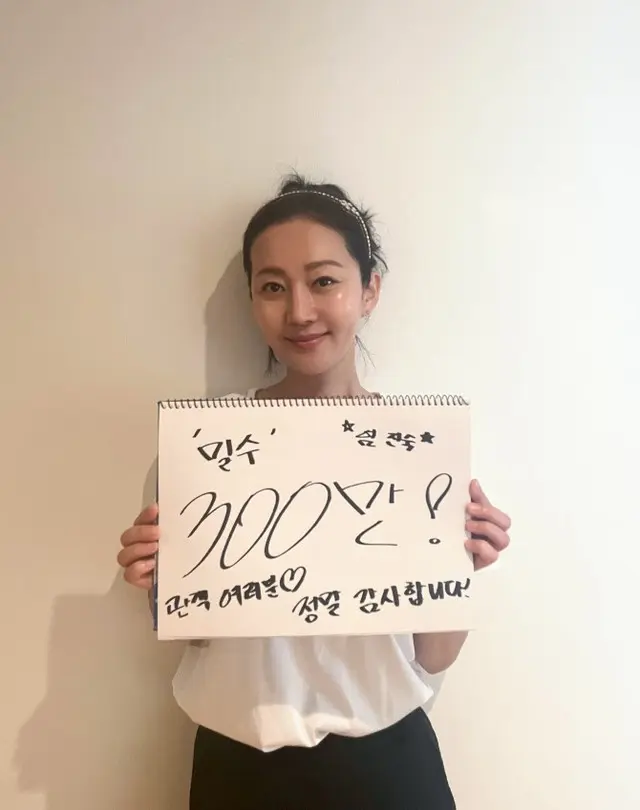 '밀수' ★엄 진숙★
300만!
관객 여러분♡ 정말 감사합니다!